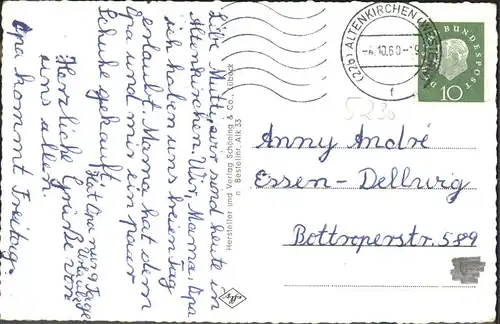 Liebe Mutti, wir sind heute in
Altenkirchen. Wir, Mama, Opa u.
ich haben uns freien Tag
erlaubt. Mama hat dem
Opa und mir ein paar
Schuhe gekauft.
Hat Opa nur 9 Tage
Urlaub
Herzliche Grüße von
uns allen.
Opa kommt Freitag.
Hersteller und Verlag Schöning & Co., Lübeck
Bestellnr. Alk 35
(22b) ALTENKIRCHEN (WESTERW)
-4.10.60-19
f
DEUTSCHE BUNDESPOST
10
5230
Anny André
Essen-Dellwig
Bottroperstr. 589